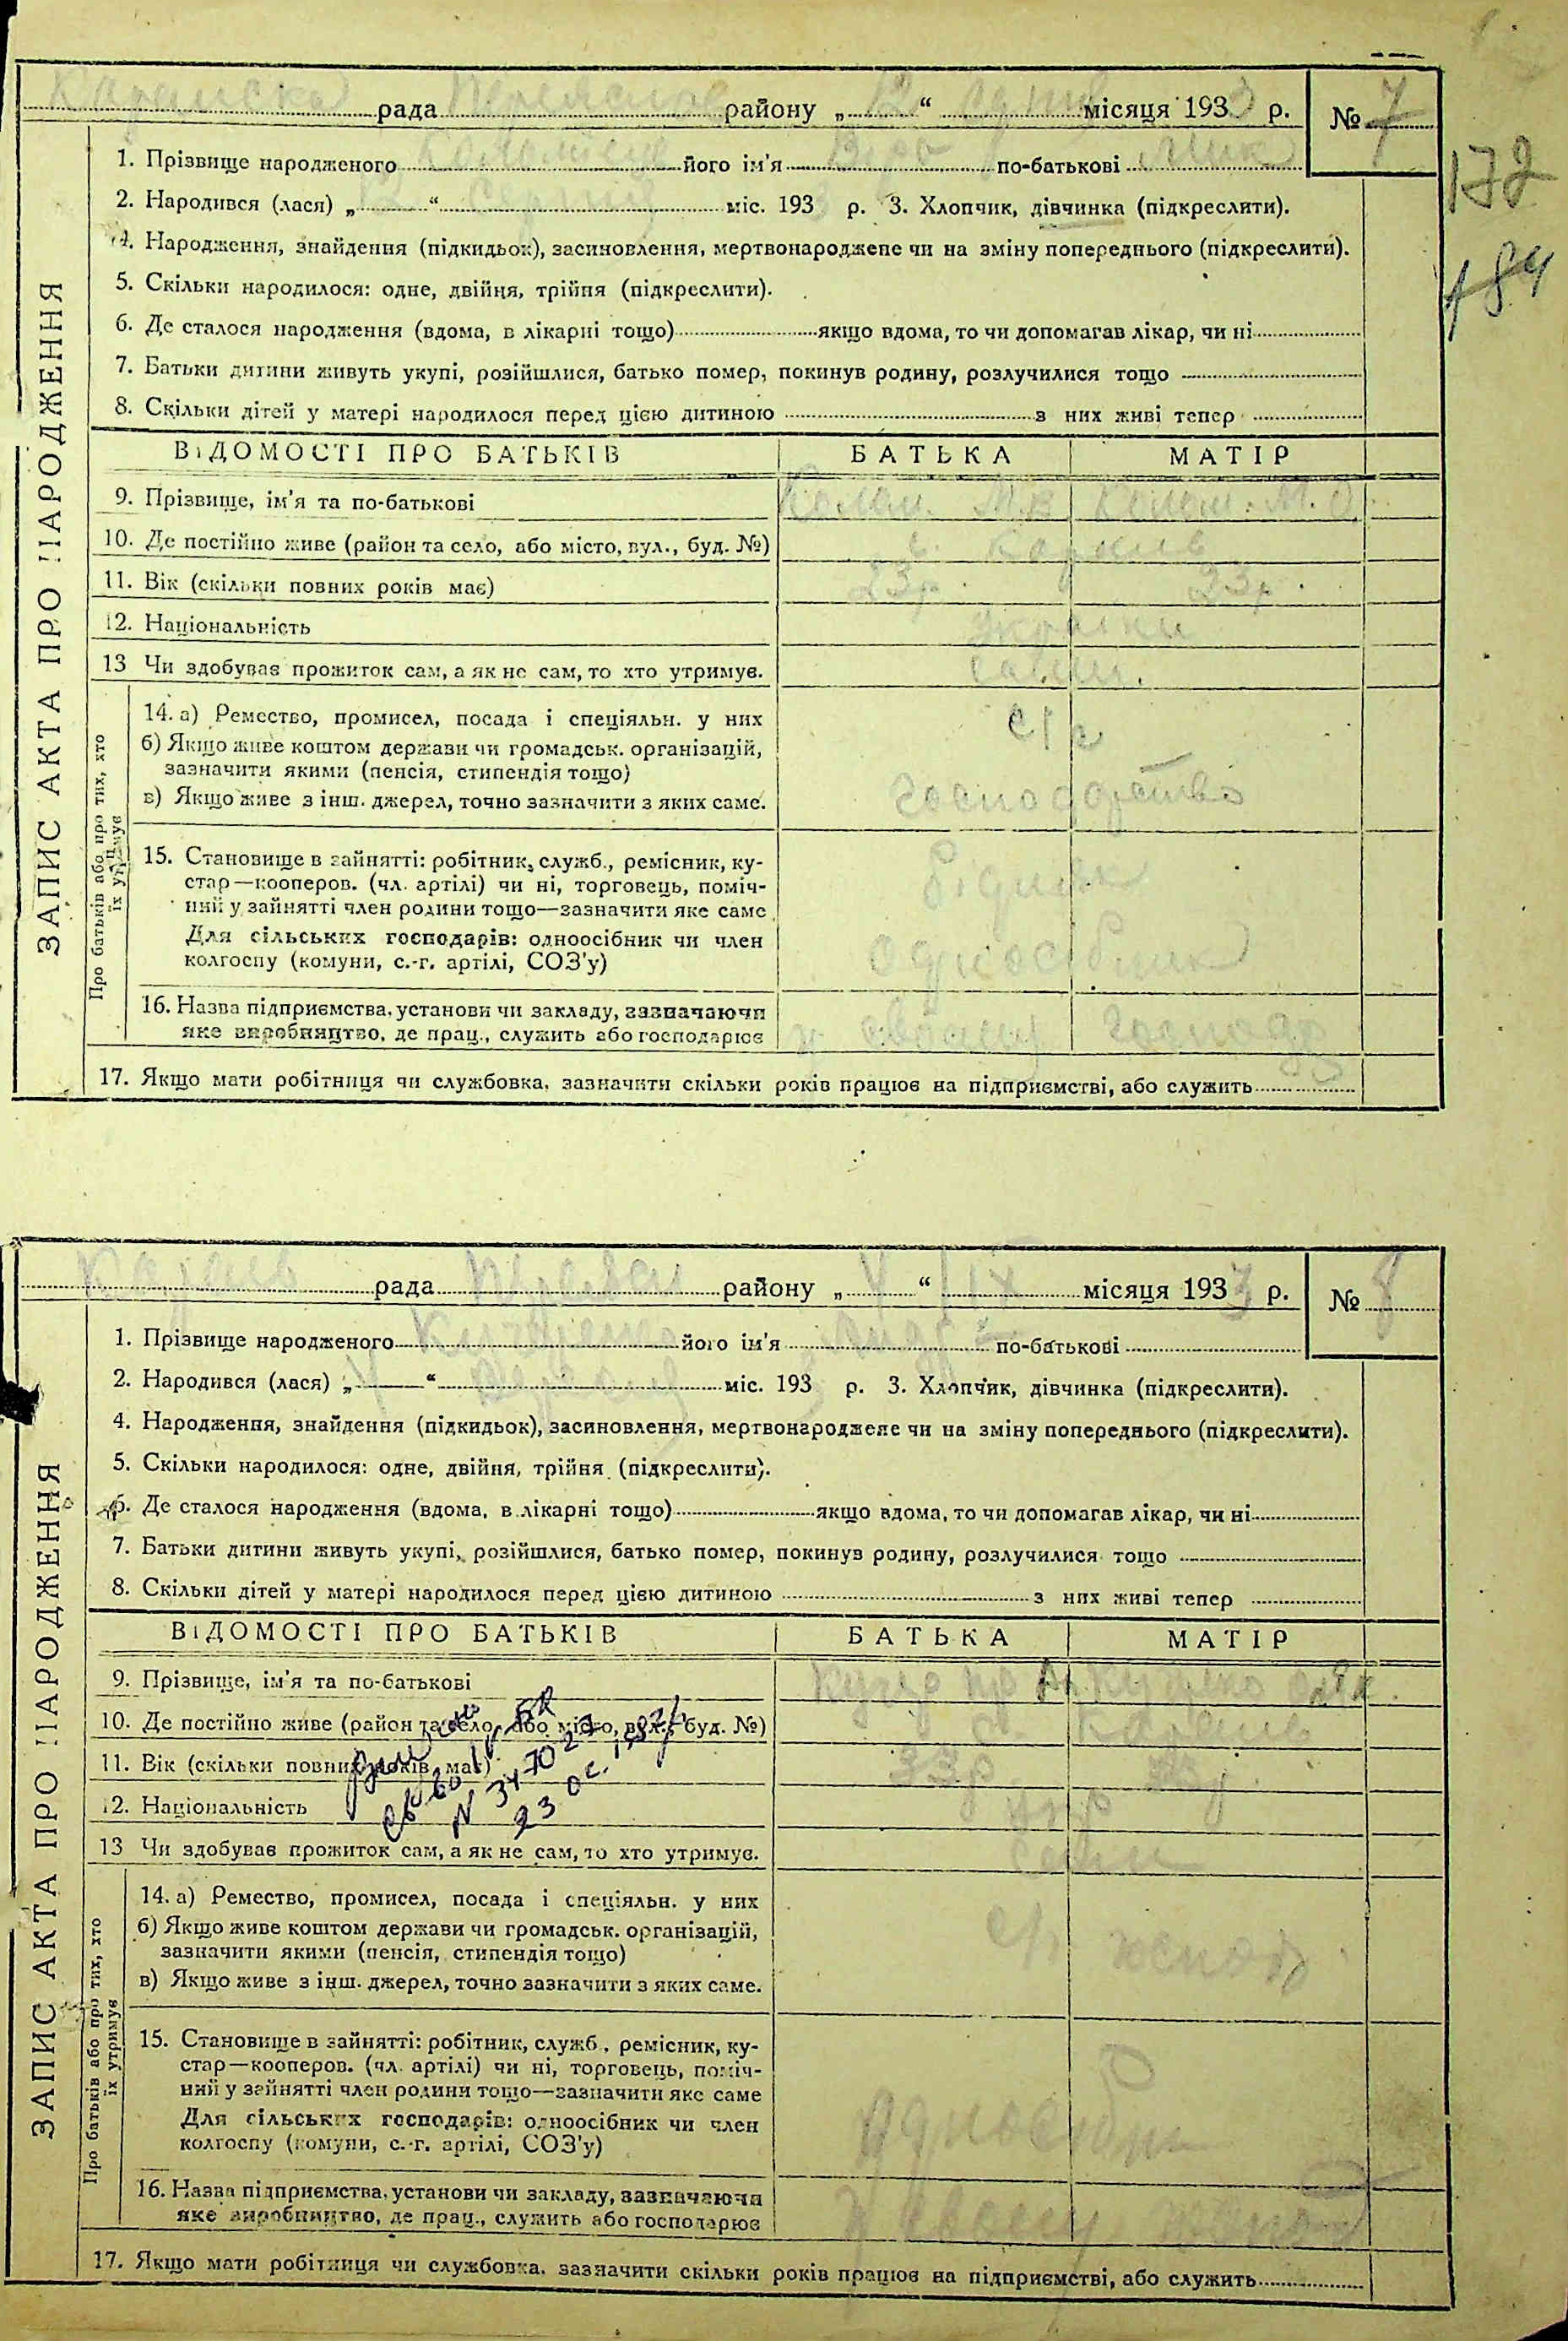 рада району „ “ місяця 193 р. № 7
172
184
1. Прізвище народженого його ім'я по-батькові
2. Народився (лася) „ “ міс. 193 р. 3. Хлопчик, дівчинка (підкреслити).
4. Народження, знайдення (підкидьок), засиновлення, мертвонароджене чи на зміну попереднього (підкреслити).
5. Скільки народилося: одне, двійня, трійня (підкреслити).
6. Де сталося народження (вдома, в лікарні тощо) якщо вдома, то чи допомагав лікар, чи ні
7. Батьки дитини живуть укупі, розійшлися, батько помер, покинув родину, розлучилися тощо
8. Скільки дітей у матері народилося перед цією дитиною з них живі тепер
ЗАПИС АКТА ПРО НАРОДЖЕННЯ
ВІДОМОСТІ ПРО БАТЬКІВ БАТЬКА МАТІР
9. Прізвище, ім'я та по-батькові
10. Де постійно живе (район та село, або місто, вул., буд. №) с.
11. Вік (скільки повних років має) 23р. 23р.
12. Національність
13 Чи здобуває прожиток сам, а як не сам, то хто утримує.
Про батьків або про тих, хто їх утримує
14. а) Ремество, промисел, посада і спеціяльн. у них с/г
б) Якщо живе коштом держави чи громадськ. організацій,
зазначити якими (пенсія, стипендія тощо)
в) Якщо живе з інш. джерел, точно зазначити з яких саме. господарство
15. Становище в зайнятті: робітник, служб., ремісник, ку-
стар—кооперов. (чл. артілі) чи ні, торговець, поміч- бідняк
ний у зайнятті член родини тощо—зазначити яке саме
Для сільських господарів: одноосібник чи член
колгоспу (комуни, с.-г. артілі, СОЗ'у) одноосібник
16. Назва підприємства, установи чи закладу, зазначаючи
яке виробництво, де прац., служить або господарює у своєму господ
17. Якщо мати робітниця чи службовка, зазначити скільки років працює на підприємстві, або служить
рада району „ “ місяця 1933 р. № 8
1. Прізвище народженого його ім'я по-батькові
2. Народився (лася) „ “ міс. 193 р. 3. Хлопчик, дівчинка (підкреслити).
4. Народження, знайдення (підкидьок), засиновлення, мертвонароджене чи на зміну попереднього (підкреслити).
5. Скільки народилося: одне, двійня, трійня (підкреслити).
6. Де сталося народження (вдома, в лікарні тощо) якщо вдома, то чи допомагав лікар, чи ні
7. Батьки дитини живуть укупі, розійшлися, батько помер, покинув родину, розлучилися тощо
8. Скільки дітей у матері народилося перед цією дитиною з них живі тепер
ЗАПИС АКТА ПРО НАРОДЖЕННЯ
ВІДОМОСТІ ПРО БАТЬКІВ БАТЬКА МАТІР
9. Прізвище, ім'я та по-батькові
10. Де постійно живе (район та село, або місто, вул., буд. №)
11. Вік (скільки повних років має) 23р
12. Національність укр
13 Чи здобуває прожиток сам, а як не сам, то хто утримує. сами
Про батьків або про тих, хто їх утримує
14. а) Ремество, промисел, посада і спеціяльн. у них
б) Якщо живе коштом держави чи громадськ. організацій,
зазначити якими (пенсія, стипендія тощо)
в) Якщо живе з інш. джерел, точно зазначити з яких саме.
15. Становище в зайнятті: робітник, служб., ремісник, ку-
стар—кооперов. (чл. артілі) чи ні, торговець, поміч-
ний у зайнятті член родини тощо—зазначити яке саме
Для сільських господарів: одноосібник чи член
колгоспу (комуни, с.-г. артілі, СОЗ'у)
16. Назва підприємства, установи чи закладу, зазначаючи
яке виробництво, де прац., служить або господарює у своєму
17. Якщо мати робітниця чи службовка, зазначити скільки років працює на підприємстві, або служить